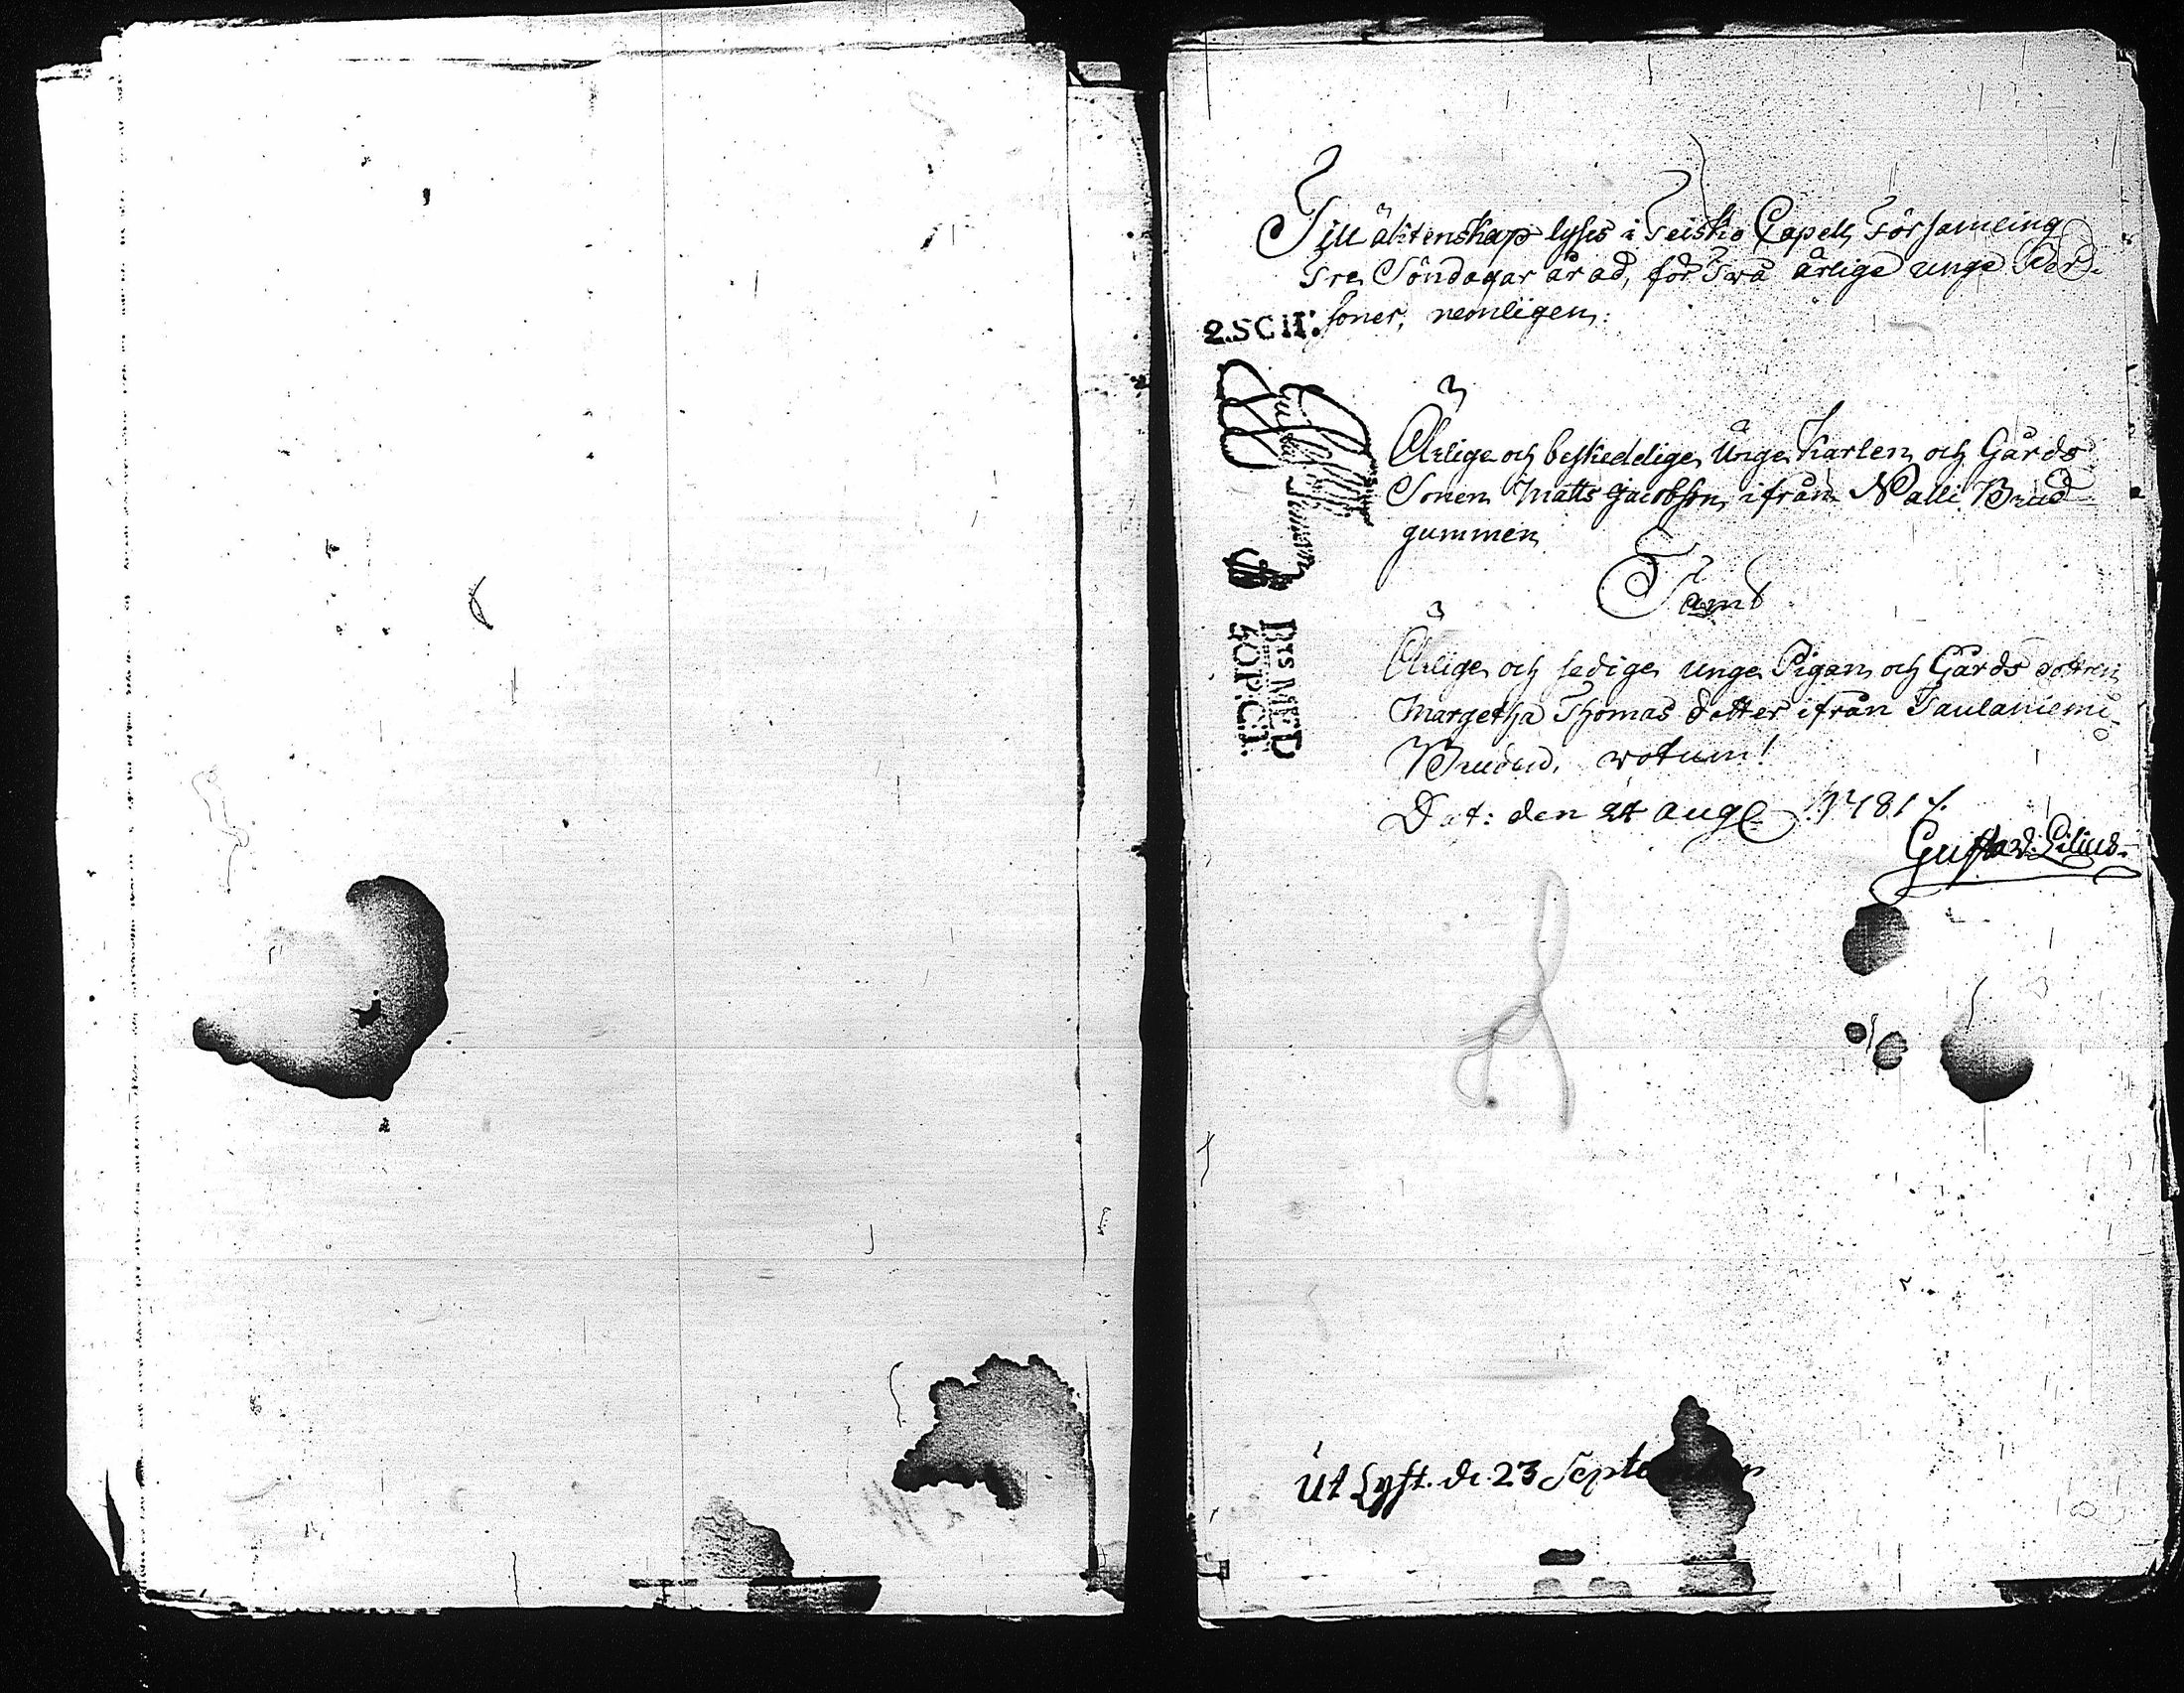 Till äktenskap lyses i Teisko Capell Församling
Tre Söndagar å rad, för Twå ärlige unge Per-
soner, nemligen:
2.SCH:
Ärlige och beskedelige Unge Karlen och Gårds
Sonen Matts Jacobson ifrån Nalli Brud-
gummen
Samt
Ärlige och sedige unge Pigan och Gårds dottren
Margetha Thomas dotter ifrån Taulaniemi
Bruden. wotum!
Dat: den 24 Aug 1781
Gustav: Lilius
BTS MED
40 P:CT.
Ut Lyst. d: 23 September